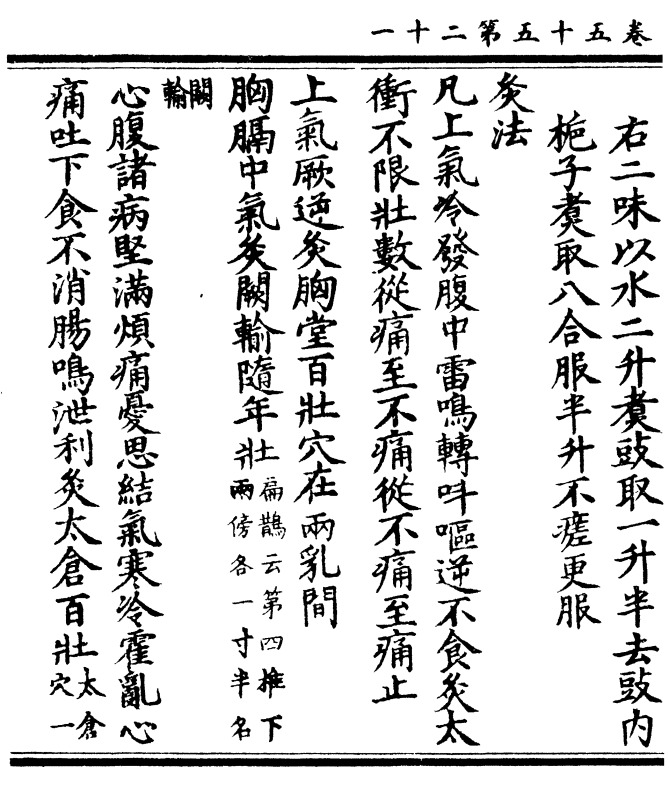 卷五十五第二十一
右二味以水二升煑豉取一升半去豉内
梔子煑取八合服半升不瘥更服
灸法
凡上氣冷發腹中雷鳴轉呌嘔逆不食灸太
衝不限壯數從痛至不痛從不痛至痛止
上氣厥逆灸胸堂百壯穴在兩乳間
胸膈中氣灸闕輸隨年壯扁鵲云第四椎下兩傍各一寸半名
闕輸
心腹諸病堅滿煩痛憂思結氣寒冷霍亂心
痛吐下食不消腸鳴泄利灸太倉百壯太倉穴一